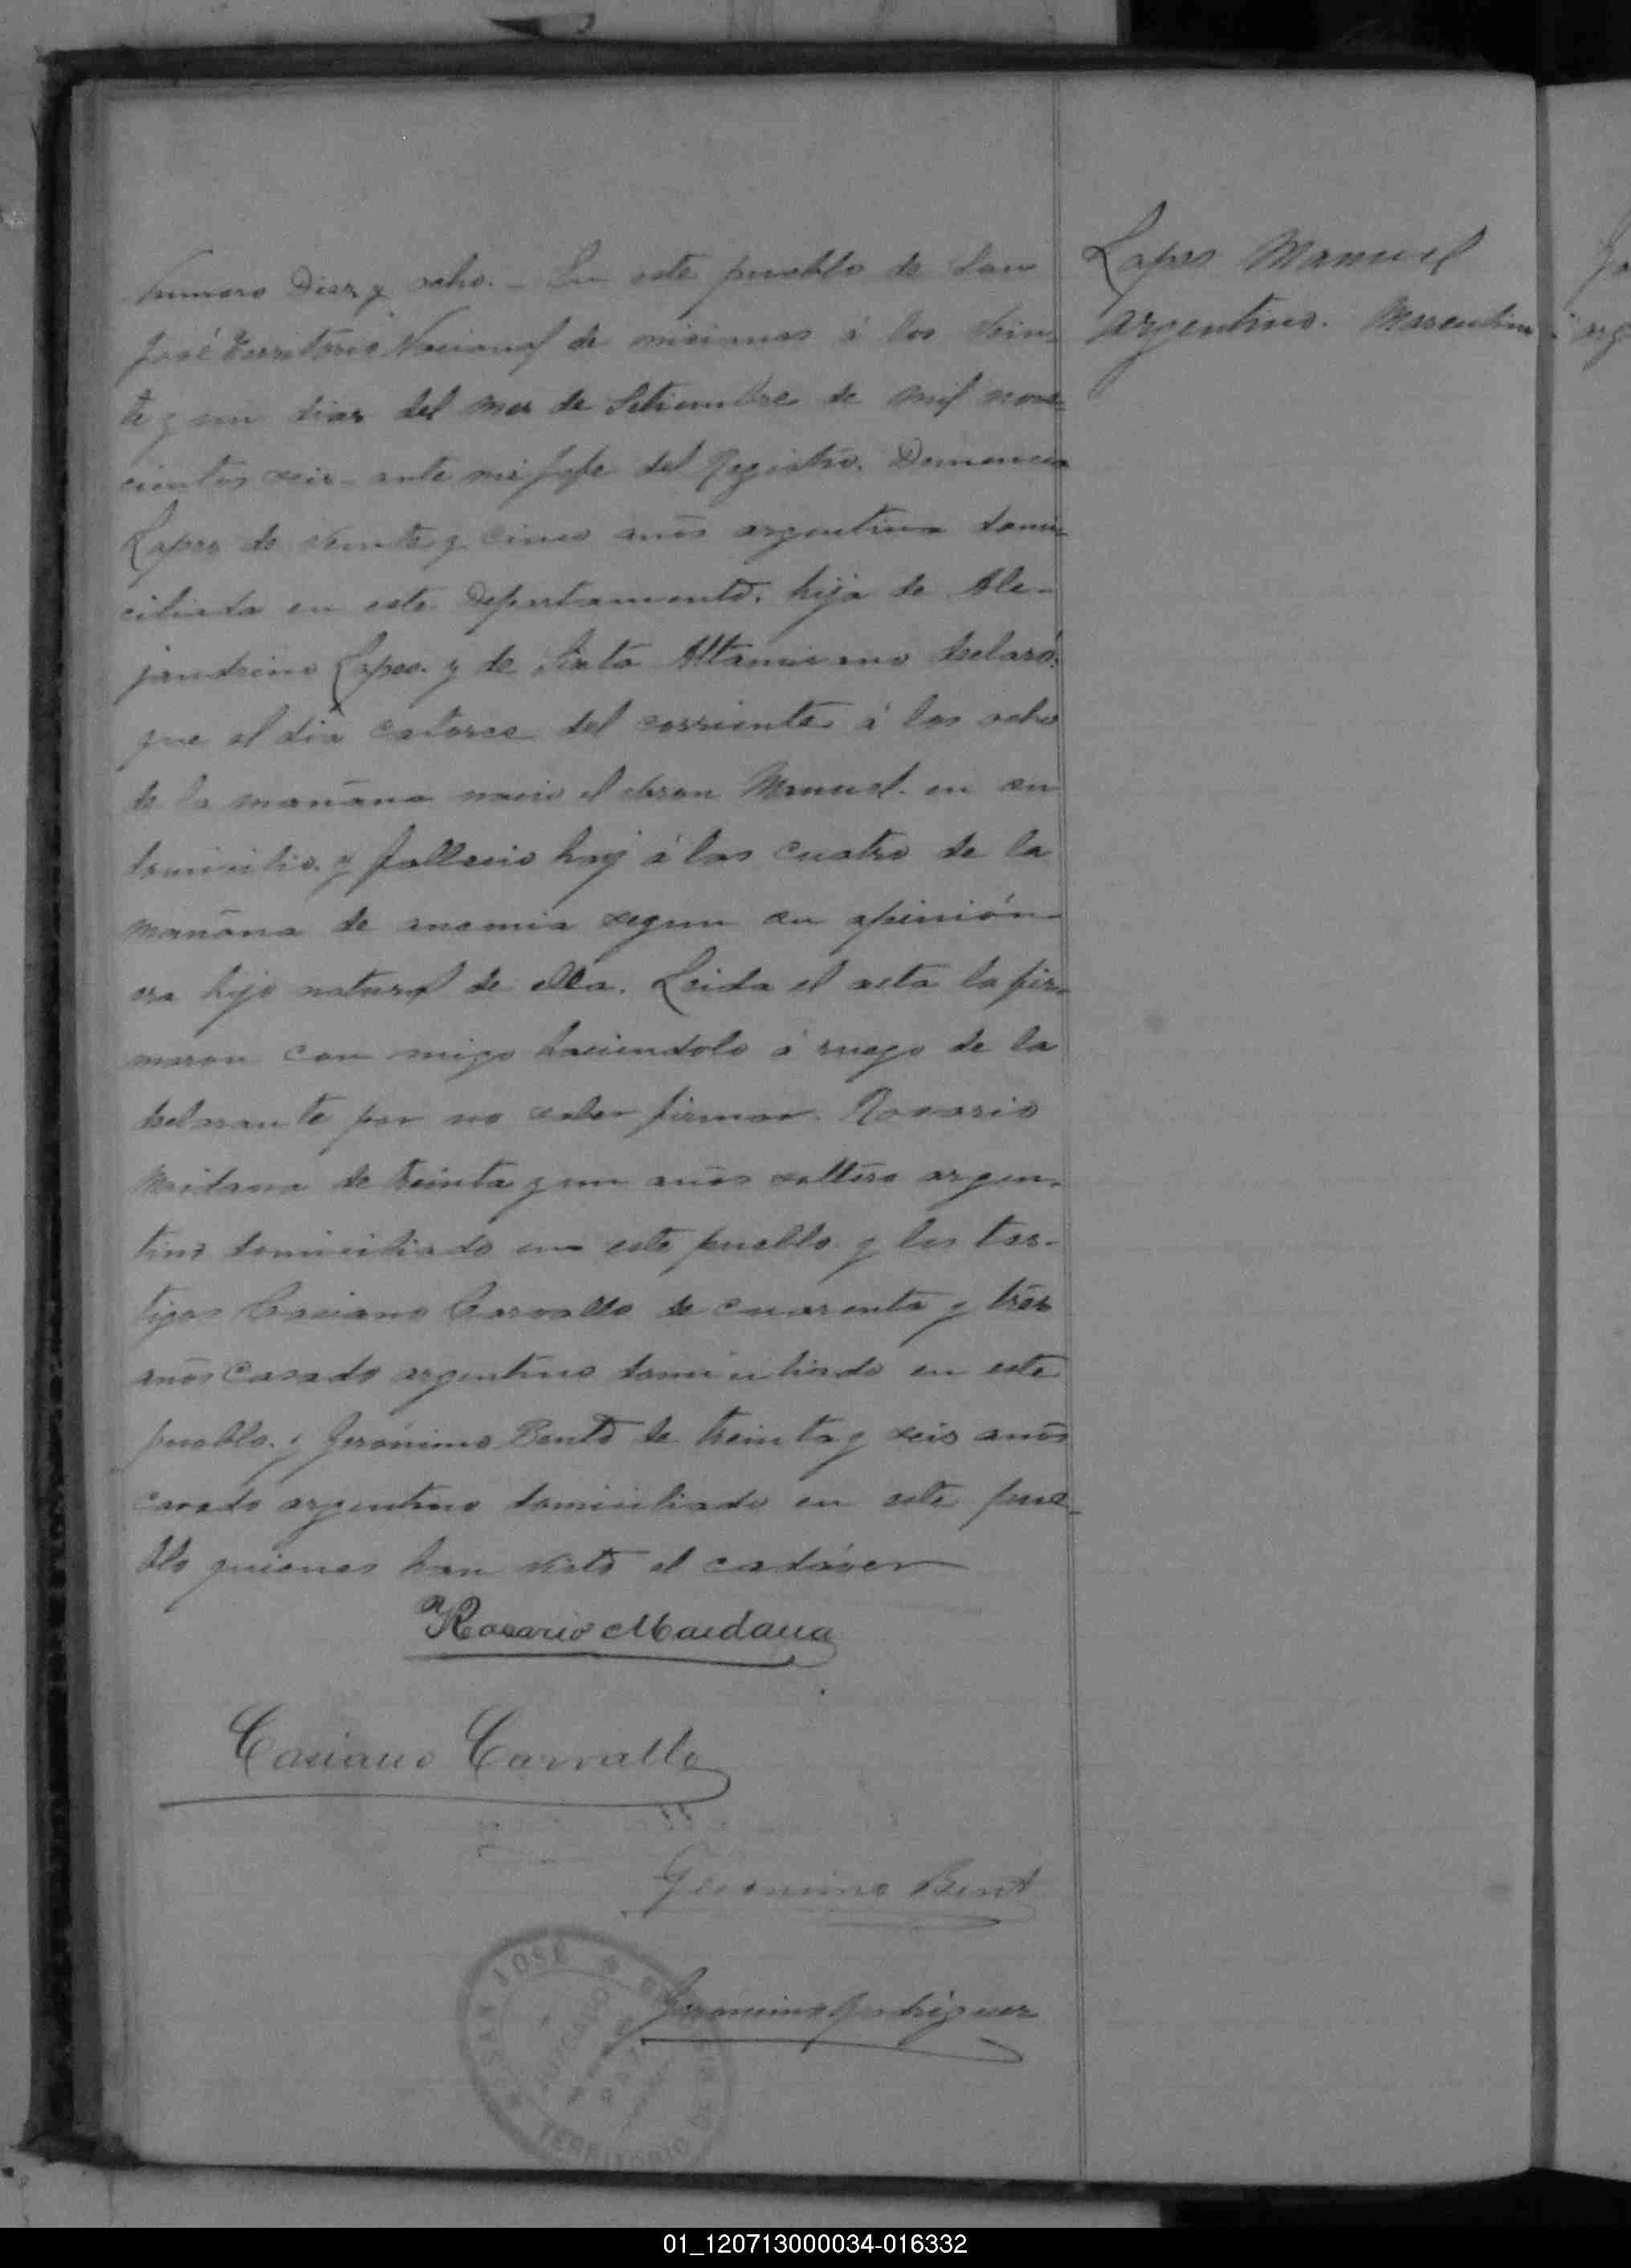 Numero Diez y ocho. - En este pueblo de San
José Territorio Nacional de misiones á los Vein-
te y un dias del mes de Setiembre de mil nove-
cientos seis - ante mi Jefe del Registro.
Lopes de veinte y cinco anõs argentina domi-
ciliada en este Departamento. hija de Ale-
jandrino Lopes. y de Sixta Altamirano declaró:
que el dia catorce del corriente á las ocho
de la manãna nacio el varon Manuel. en su
domicilio. y fallecio hoy á las cuatro de la
manãna de anemia segun su opinión
era hijo natural de ella. Leida el acta la fir-
maron con migo haciendolo á ruego de la
declarante por no saber firmar. Rosario
Maidana de treinta y un anõs soltero argen-
tino domiciliado en este pueblo y los tes-
tigos Casiano Carvallo de cuarenta y tres
anõs Casado argentino domiciliado en este
pueblo. y Jeronimo Bento de treinta y seis anõs
casado argentino domiciliado en este pue-
blo quienes han visto el cadáver
Rosario Maidana
Casiano Carvallo
Geronimo Bent
Geronimo Rodriguez
SAN JOSÉ
JUZGADO
DE PAZ
TERRITORIO DE
Lopes Manuel
Argentino. Masculino
01_120713000034-016332